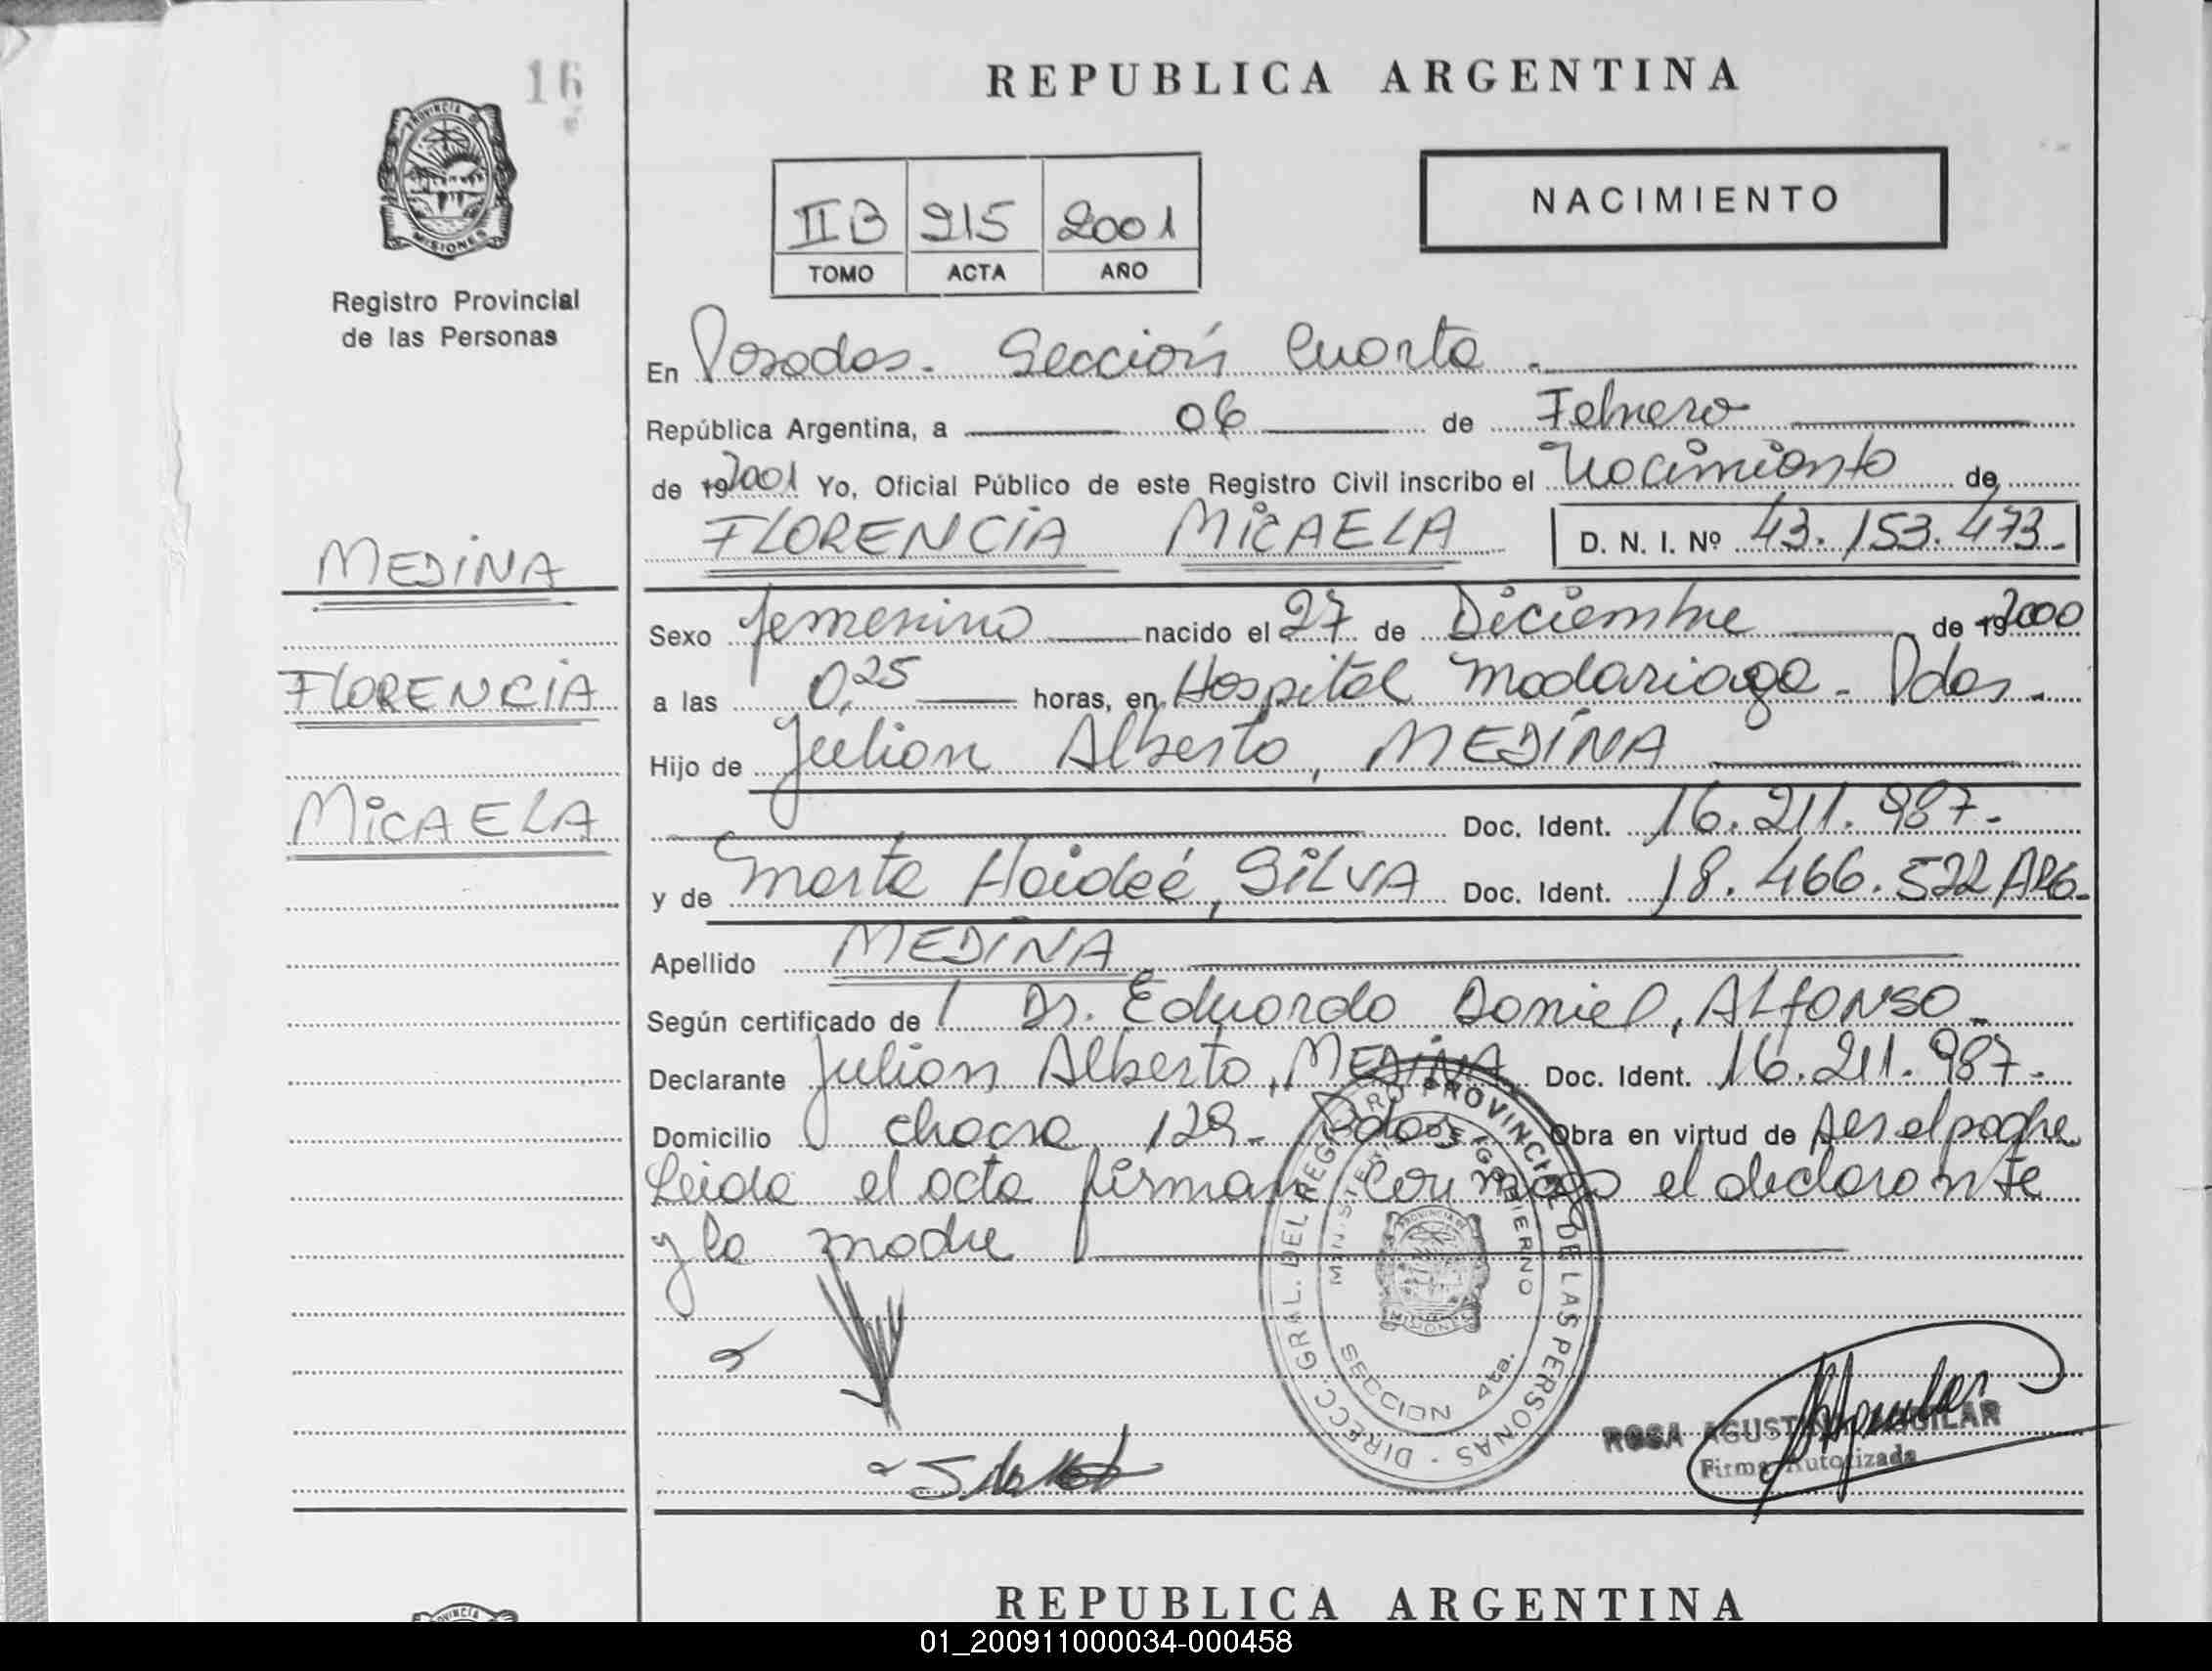 16
REPUBLICA ARGENTINA
PROVINCIA DE
MISIONES
Registro Provincial
de las Personas
II B 215 2001
TOMO ACTA AÑO
NACIMIENTO
En Posadas. Sección Cuarta.
República Argentina, a 06 de Febrero
de 19 2001 Yo, Oficial Público de este Registro Civil inscribo el Nacimiento de
FLORENCIA MICAELA D. N. I. Nº 43.153.473-
MEDINA
FLORENCIA
MICAELA
Sexo femenino nacido el 27 de Diciembre de 19 2000
a las 0,25 horas, en Hospital Madariaga - Pdas.
Hijo de Julian Alberto, MEDINA
Doc. Ident. 16.211.987-
y de Marta Haideé, SILVA Doc. Ident. 18.466.522 ARG-
Apellido MEDINA
Según certificado de Dr. Eduardo Daniel, ALFONSO-
Declarante Julian Alberto, MEDINA Doc. Ident. 16.211.987-
Domicilio chacra 129- Pdas Obra en virtud de ser el padre
Leida el acta firman con migo el declarante
y la madre
DIRECC. GRAL. DEL REGISTRO PROVINCIAL DE LAS PERSONAS
MINISTERIO DE GOBIERNO
PROVINCIA DE
MISIONES
SECCION 4ta.
ROSA AGUSTINA AGUILAR
Firma Autorizada
REPUBLICA ARGENTINA
01_200911000034-000458